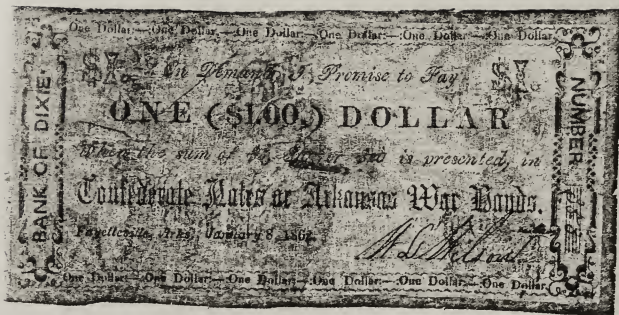 One Dollar:—One Dollar:—One Dollar:—One Dollar:—One Dollar:—One Dollar
BANK OF DIXIE
On Demand, I Promise to Pay
ONE ($1.00,) DOLLAR
When the sum of is presented, in
Confederate Notes or Arkansas War Bonds.
Fayetteville, Ark., January 8, 1862
NUMBER
One Dollar:—One Dollar:—One Dollar:—One Dollar:—One Dollar:—One Dollar